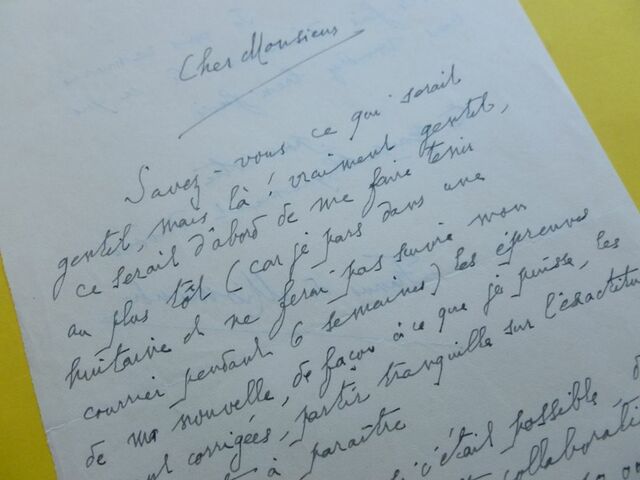 Cher Monsieur
Savez-vous ce qui serait
gentil, mais là! vraiment gentil,
ce serait d'abord de me faire tenir
au plus tôt (car je pars dans une
huitaine et ne ferai pas suivre mon
courrier pendant 6 semaines) les épreuves
de ma nouvelle, de façon à ce que je puisse, les
corrigées, partir tranquille sur l'exactitu
à paraître
c'était possible d
collaborati